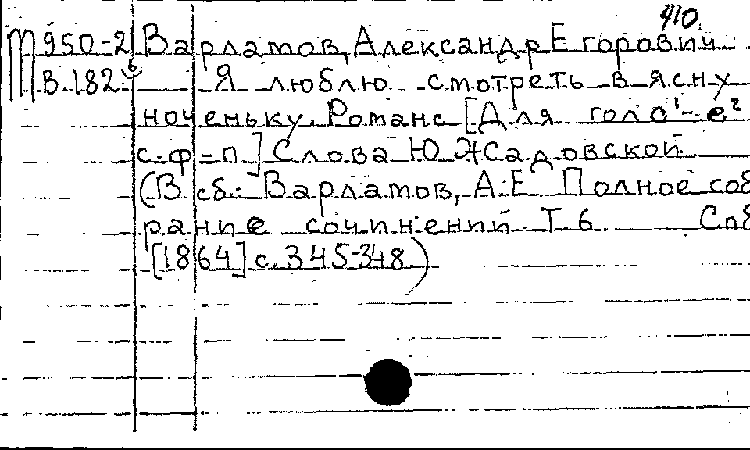 910.
М 950-2 Варламов, Александр Егорович
В.182 б Я люблю смотреть в ясну
ноченьку. Романс [Для голо¹-е²
с.ф-п.] Слова Ю.Жсадовской
(В сб: Варламов, А.Е Полное соб
рание сочинений Т.6 Спб
[1864] с.345-348)